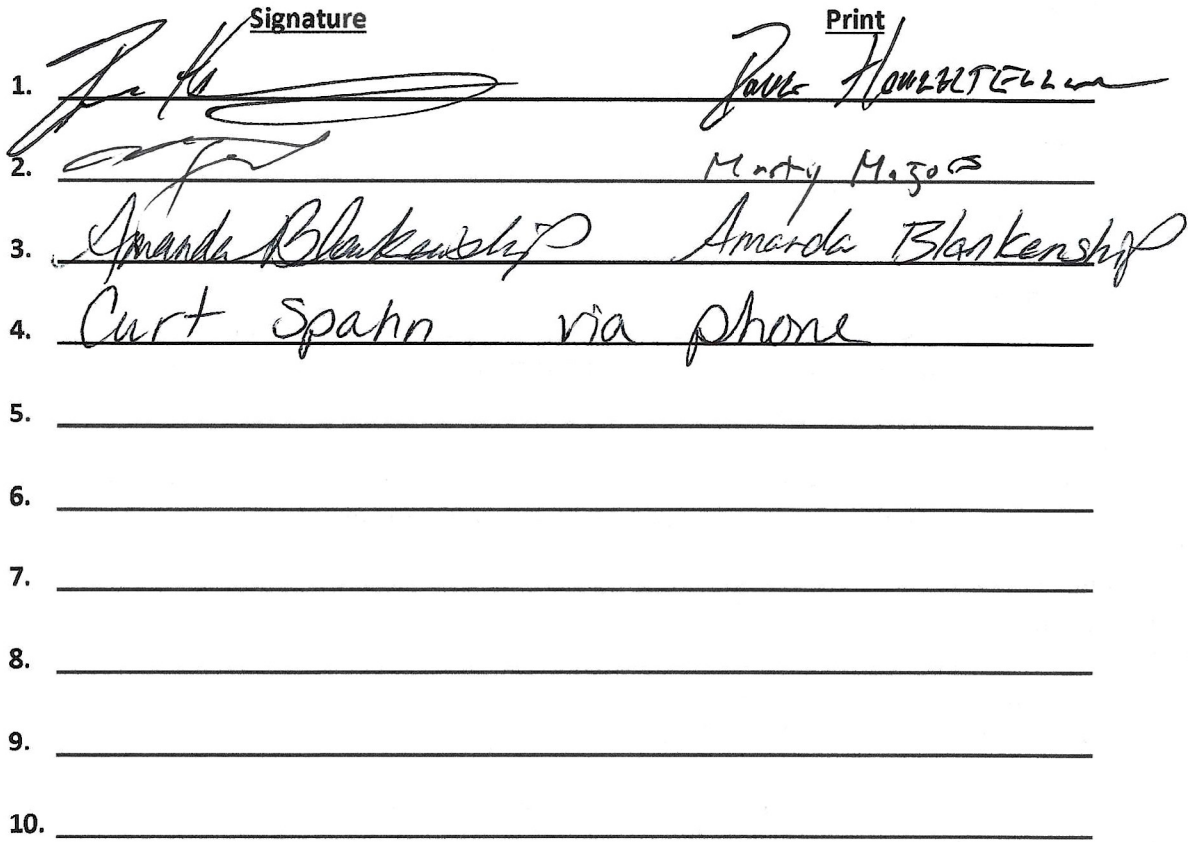 Signature Print
1.
2. Marty
3. Amanda Blankenship Amanda Blankenship
4. Curt Spahn via phone
5.
6.
7.
8.
9.
10.